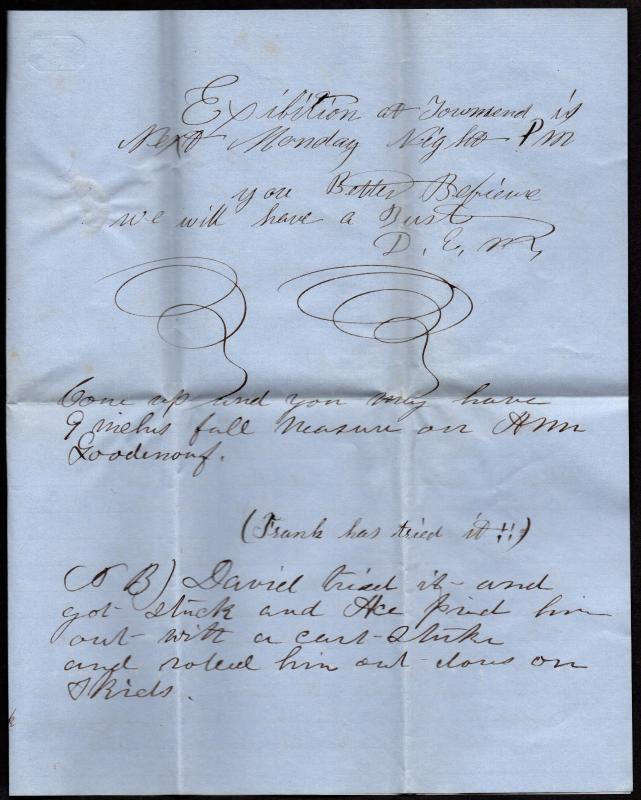 Exibition at Townsend is
Next Monday Night PM
you Better Believe
we will have a Bust
D. E. M.
Come up and you may have
9 inches full measure on Ann
Goodenouf.
(Frank has tried it !!)
(N B) David tried it and
got stuck and Ace pried him
out with a cart stake
and roled him out dows on
skids.